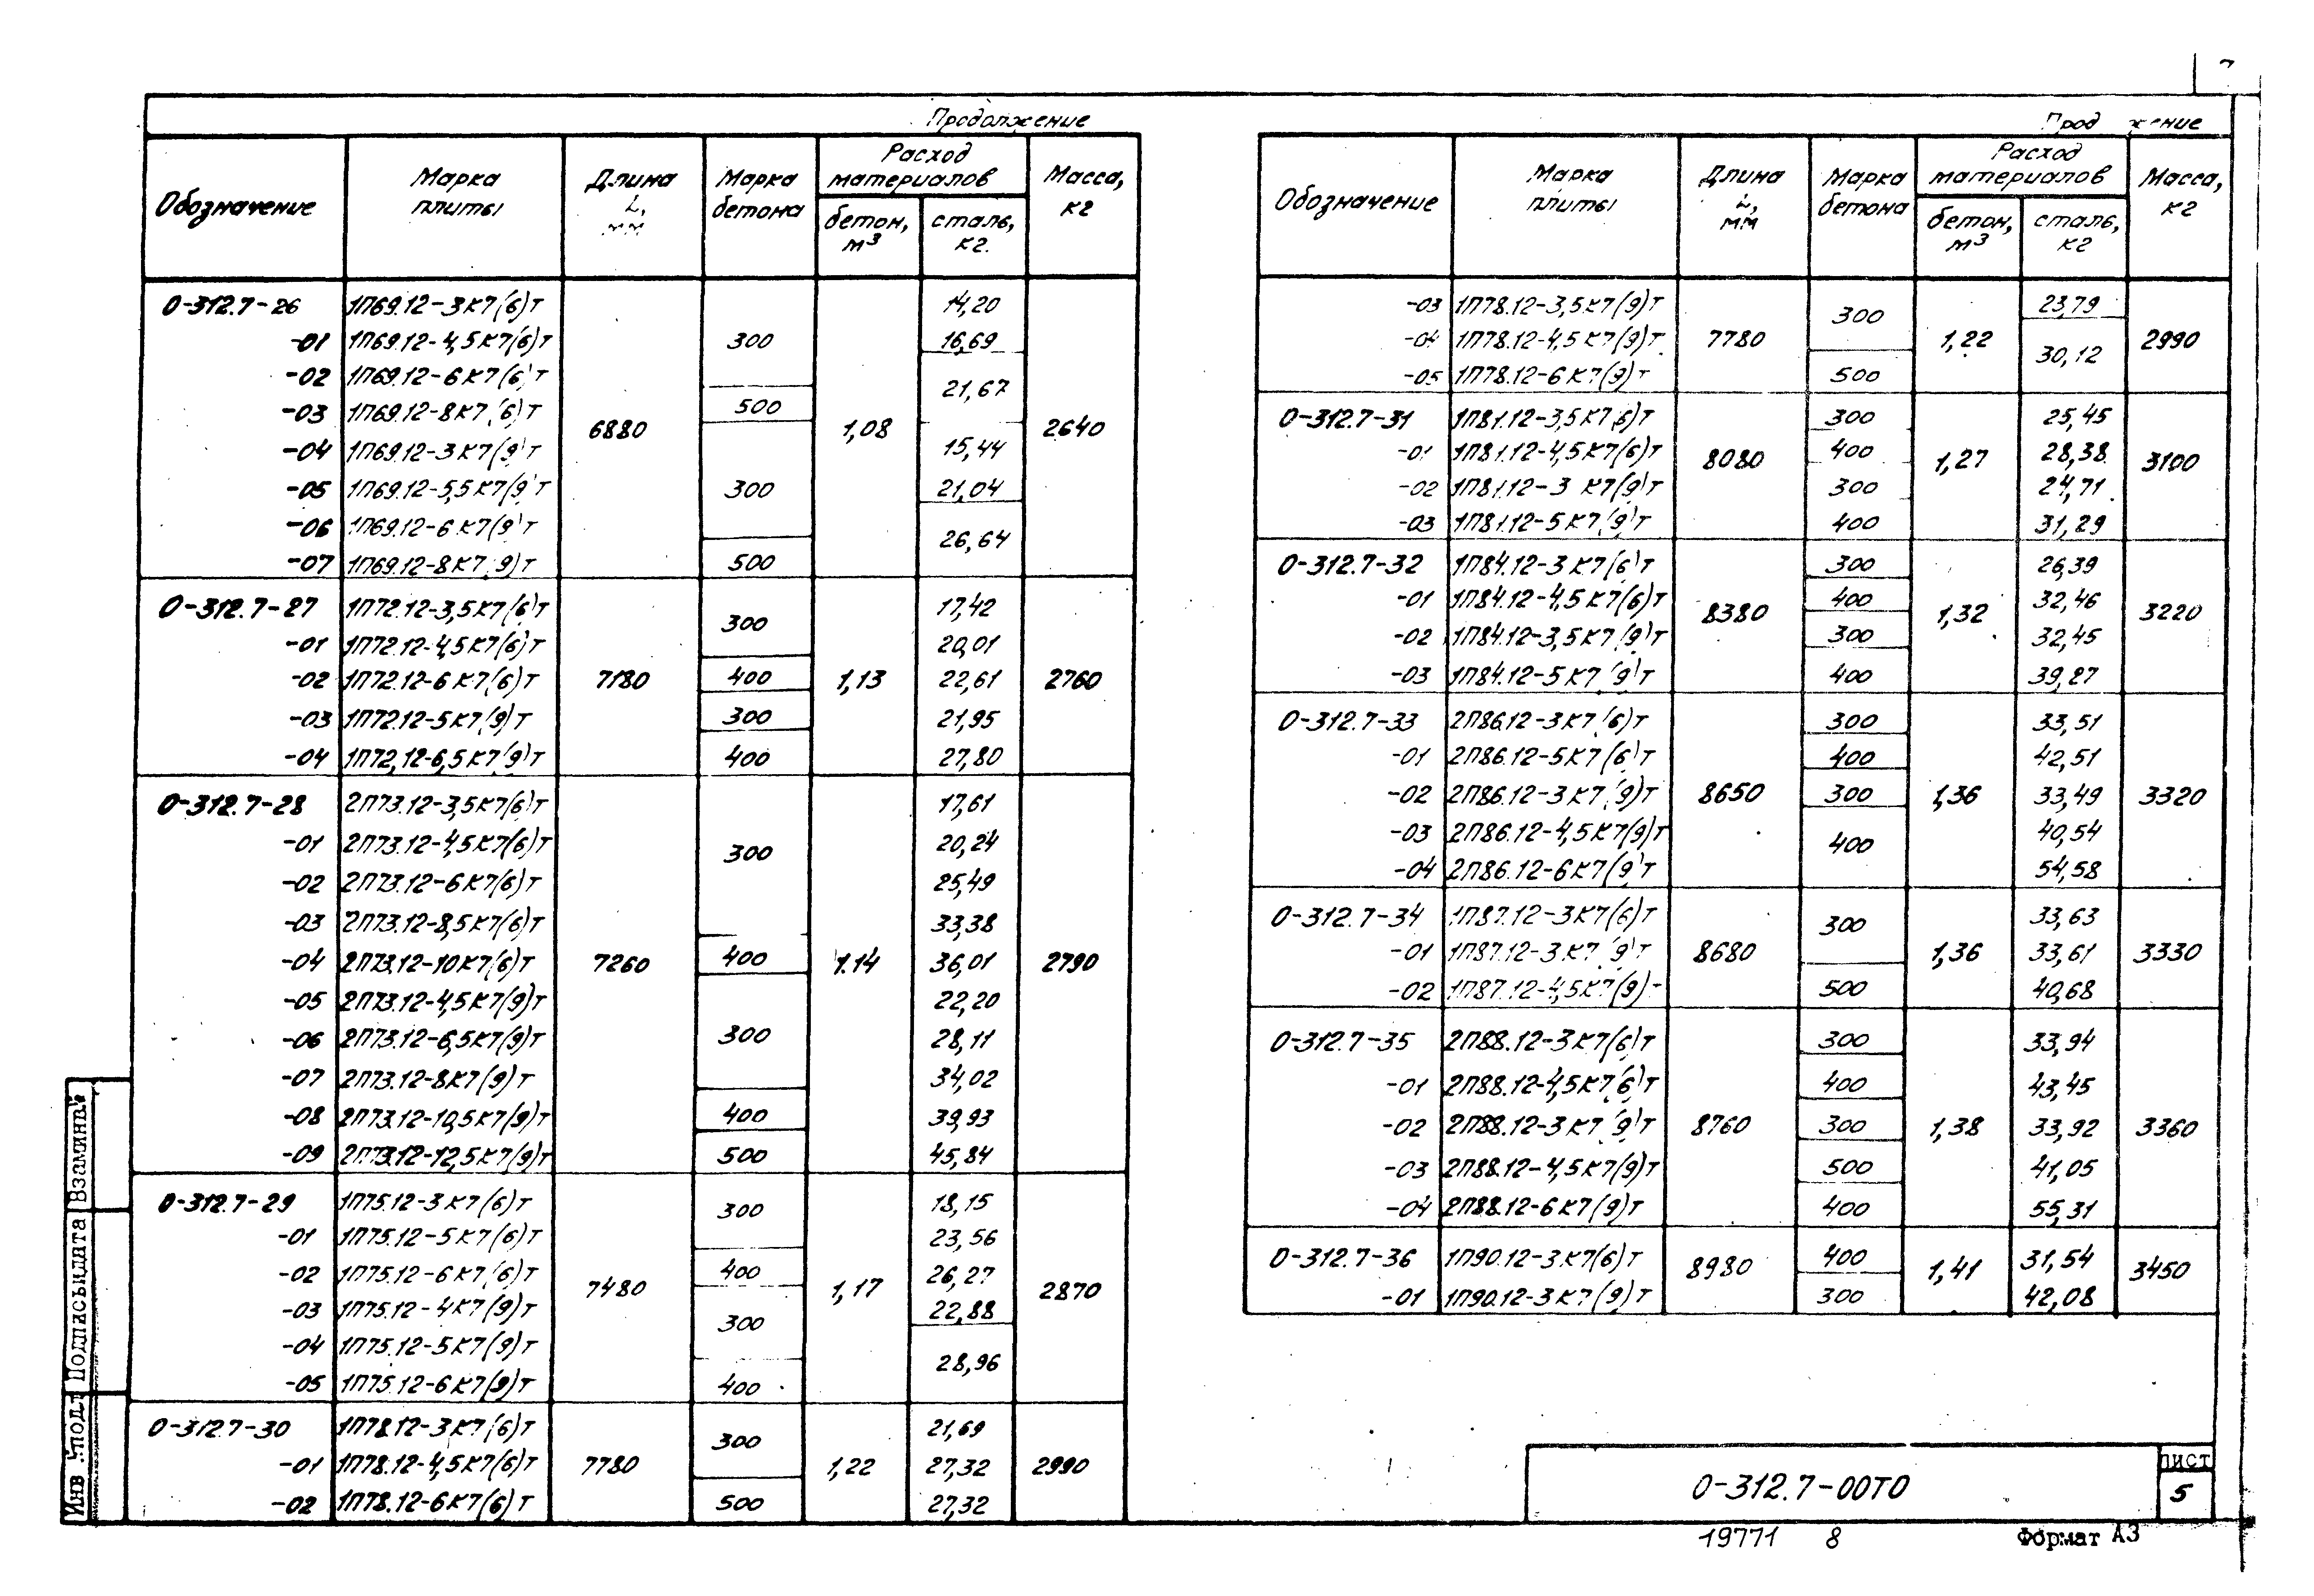 Продолжение
Обозначение Марка плиты Длина L, мм Марка бетона Расход материалов бетон, м³ сталь, кг Масса, кг
0-312.7-26 1П69.12-3К7(6)Т 6880 300 1,08 14,20 2640
-01 1П69.12-4,5К7(6)Т 16,69
-02 1П69.12-6К7(6)Т 21,67
-03 1П69.12-8К7(6)Т 500
-04 1П69.12-3К7(9)Т 300 15,44
-05 1П69.12-5,5К7(9)Т 21,04
-06 1П69.12-6К7(9)Т 26,64
-07 1П69.12-8К7(9)Т 500
0-312.7-27 1П72.12-3,5К7(6)Т 7180 300 1,13 17,42 2760
-01 1П72.12-4,5К7(6)Т 20,01
-02 1П72.12-6К7(6)Т 400 22,61
-03 1П72.12-5К7(9)Т 300 21,95
-04 1П72,12-6,5К7(9)Т 400 27,80
0-312.7-28 2П73.12-3,5К7(6)Т 7260 300 1.14 17,61 2790
-01 2П73.12-4,5К7(6)Т 20,24
-02 2П73.12-6К7(6)Т 25,49
-03 2П73.12-8,5К7(6)Т 33,38
-04 2П73.12-10К7(6)Т 400 36,01
-05 2П73.12-4,5К7(9)Т 300 22,20
-06 2П73.12-6,5К7(9)Т 28,11
-07 2П73.12-8К7(9)Т 34,02
-08 2П73.12-10,5К7(9)Т 400 39,93
-09 2П73.12-12,5К7(9)Т 500 45,84
0-312.7-29 1П75.12-3К7(6)Т 7480 300 1,17 18,15 2870
-01 1П75.12-5К7(6)Т 23,56
-02 1П75.12-6К7(6)Т 400 26,27
-03 1П75.12-4К7(9)Т 300 22,88
-04 1П75.12-5К7(9)Т 28,96
-05 1П75.12-6К7(9)Т 400
0-312.7-30 1П78.12-3К7(6)Т 7780 300 1,22 21,69 2990
-01 1П78.12-4,5К7(6)Т 27,32
-02 1П78.12-6К7(6)Т 500 27,32
Прод жение
Обозначение Марка плиты Длина L, мм Марка бетона Расход материалов бетон, м³ сталь, кг Масса, кг
-03 1П78.12-3,5К7(9)Т 7780 300 1,22 23,79 2990
-04 1П78.12-4,5К7(9)Т 30,12
-05 1П78.12-6К7(9)Т 500
0-312.7-31 1П81.12-3,5К7(6)Т 8080 300 1,27 25,45 3100
-01 1П81.12-4,5К7(6)Т 400 28,38
-02 1П81.12-3 К7(9)Т 300 24,71
-03 1П81.12-5К7(9)Т 400 31,29
0-312.7-32 1П84.12-3К7(6)Т 8380 300 1,32 26,39 3220
-01 1П84.12-4,5К7(6)Т 400 32,46
-02 1П84.12-3,5К7(9)Т 300 32,45
-03 1П84.12-5К7(9)Т 400 39,27
0-312.7-33 2П86.12-3К7(6)Т 8650 300 1,36 33,51 3320
-01 2П86.12-5К7(6)Т 400 42,51
-02 2П86.12-3К7(9)Т 300 33,49
-03 2П86.12-4,5К7(9)Т 400 40,54
-04 2П86.12-6К7(9)Т 54,58
0-312.7-34 1П87.12-3К7(6)Т 8680 300 1,36 33,63 3330
-01 1П87.12-3К7(9)Т 33,61
-02 1П87.12-4,5К7(9)- 500 40,68
0-312.7-35 2П88.12-3К7(6)Т 8760 300 1,38 33,94 3360
-01 2П88.12-4,5К7(6)Т 400 43,45
-02 2П88.12-3К7(9)Т 300 33,92
-03 2П88.12-4,5К7(9)Т 500 41,05
-04 2П88.12-6К7(9)Т 400 55,31
0-312.7-36 1П90.12-3К7(6)Т 8980 400 1,41 31,54 3450
-01 1П90.12-3К7(9)Т 300 42,08
0-312.7-00Т0
лист
5
19771 8 Формат А3
Инв №подл Подпись и дата Взам инв№